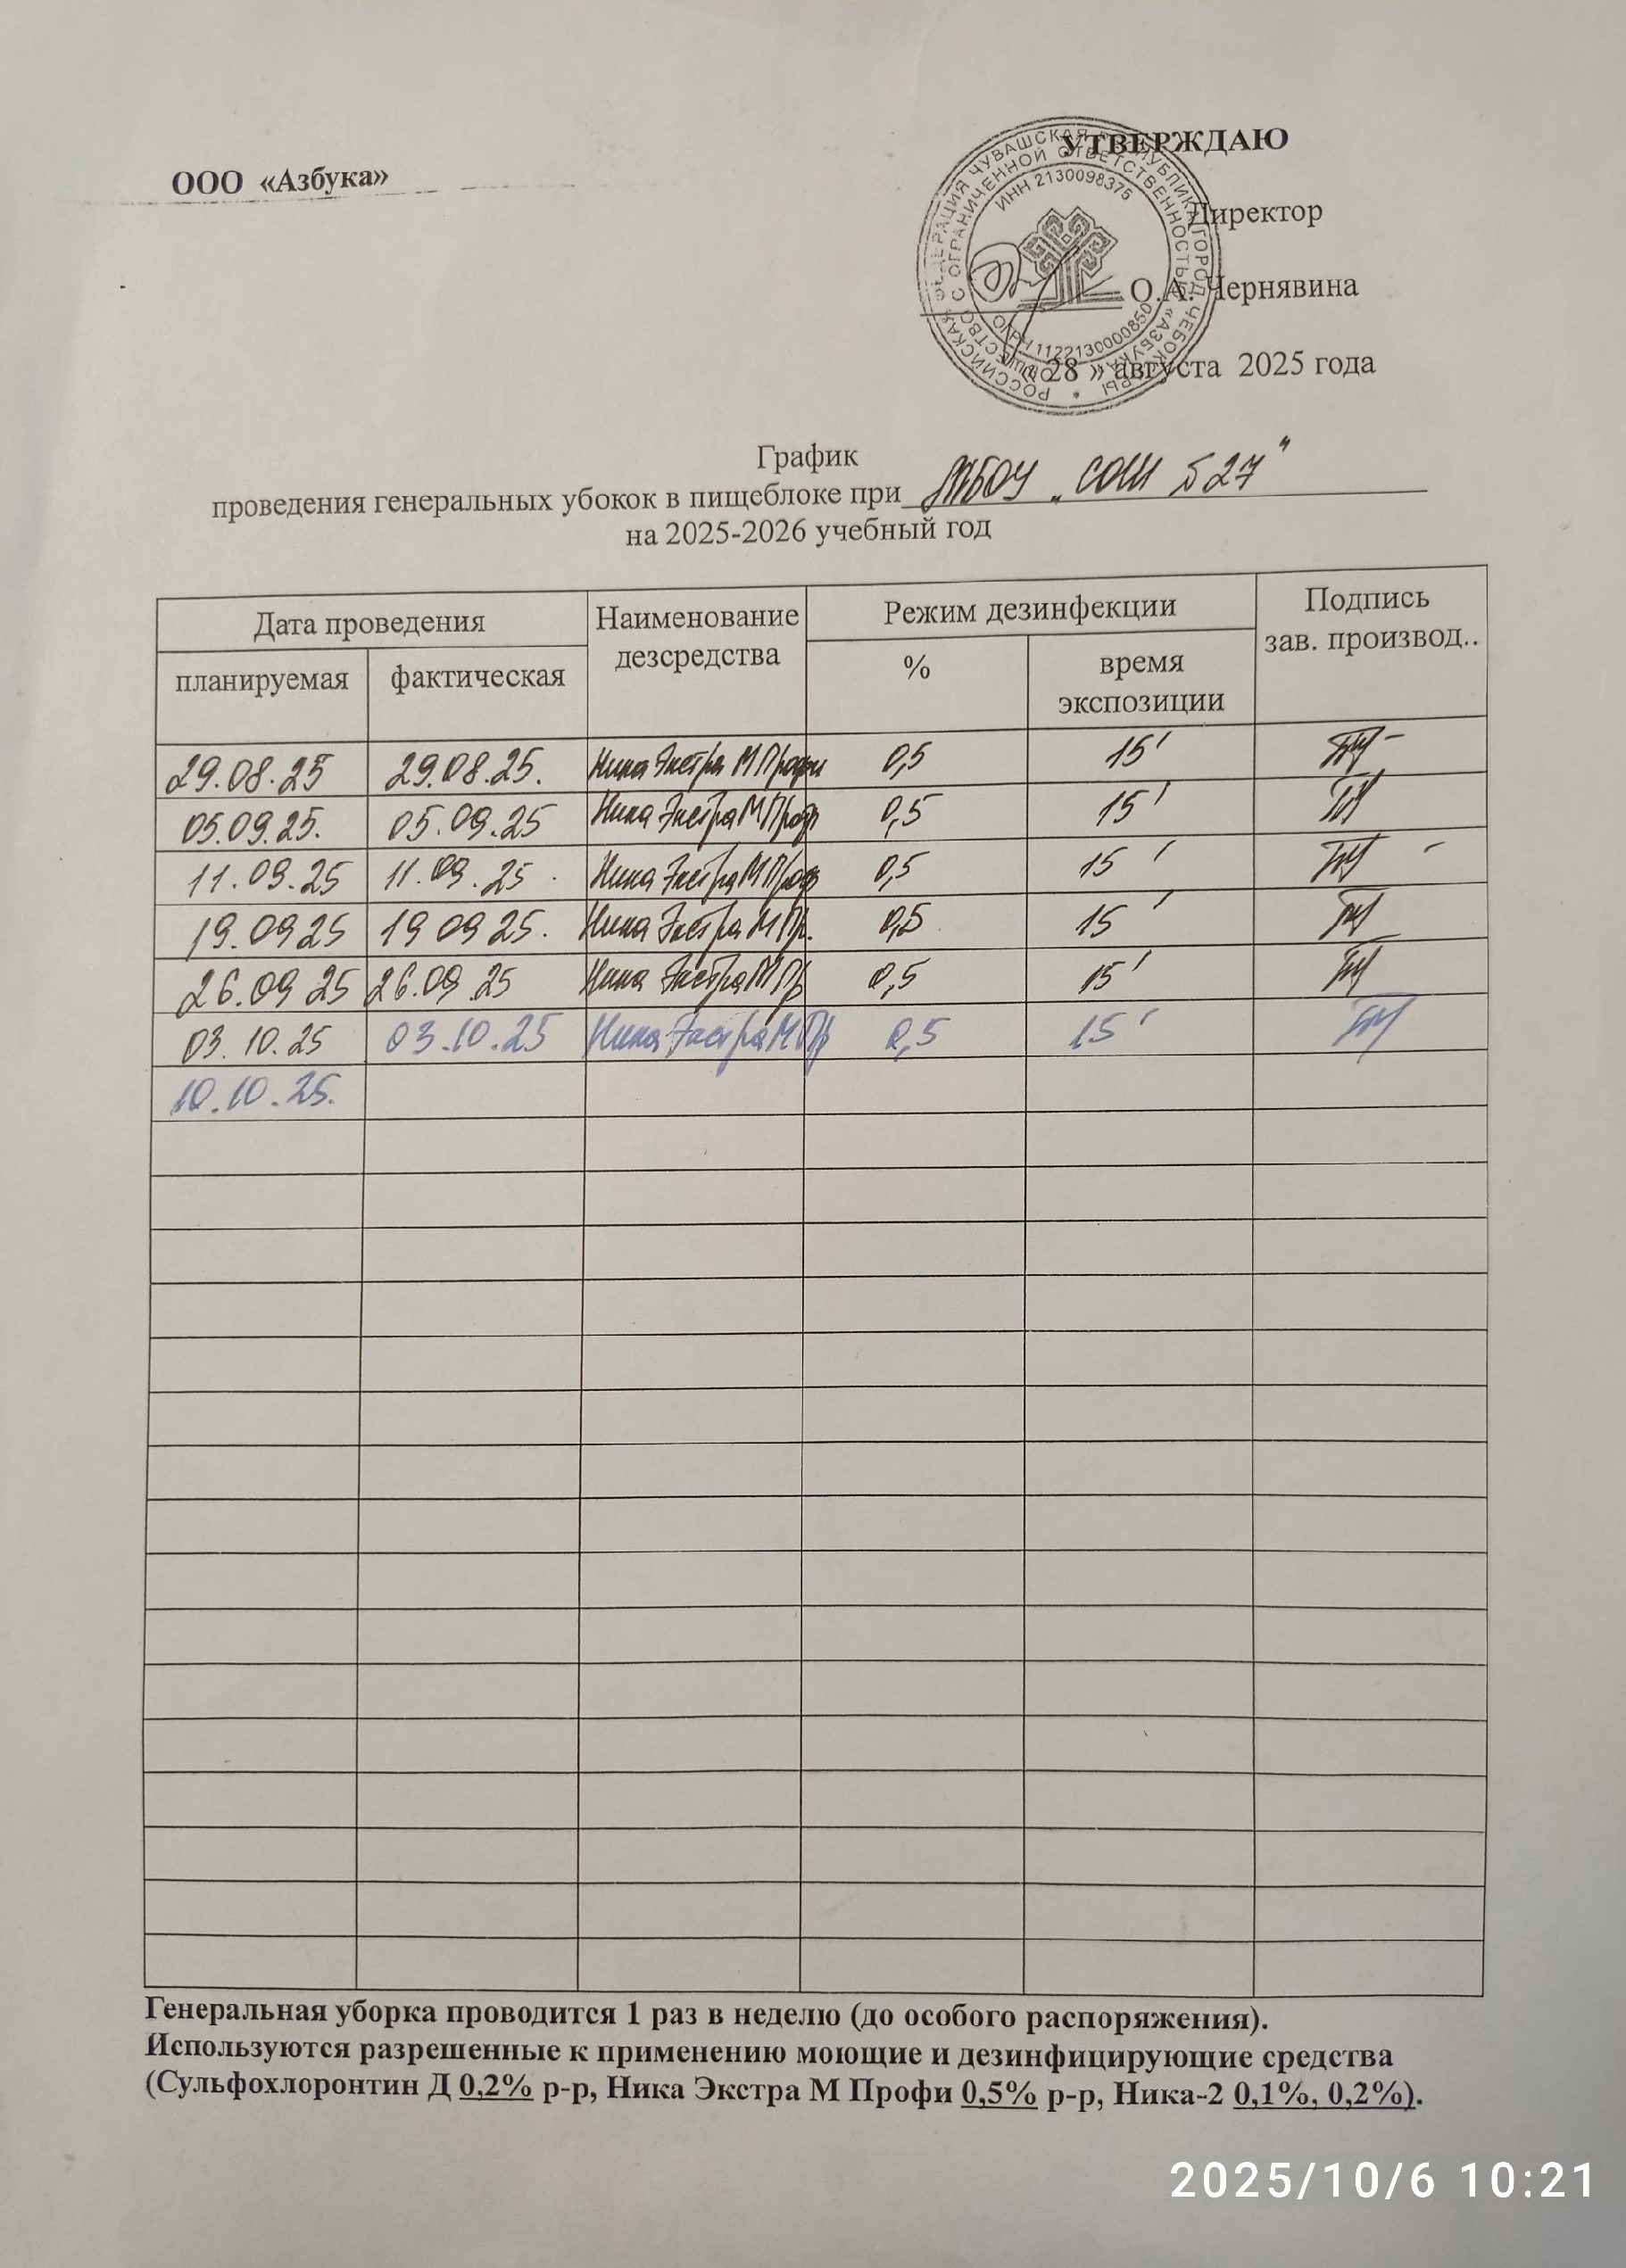 ООО «Азбука»
УТВЕРЖДАЮ
Директор
О.А. Чернявина
« 28 » августа 2025 года
РОССИЙСКАЯ ФЕДЕРАЦИЯ ЧУВАШСКАЯ РЕСПУБЛИКА ГОРОД ЧЕБОКСАРЫ
ОБЩЕСТВО С ОГРАНИЧЕННОЙ ОТВЕТСТВЕННОСТЬЮ «АЗБУКА»
ИНН 2130098375
ОГРН 1122130000850
График
проведения генеральных убокок в пищеблоке при МБОУ „СОШ 527"
на 2025-2026 учебный год
Дата проведения Наименование дезсредства Режим дезинфекции Подпись зав. производ..
планируемая фактическая % время экспозиции
29.08.25 29.08.25. Ника Экстра М Профи 0,5 15'
05.09.25. 05.09.25 Ника Экстра М Проф 0,5 15'
11.09.25 11.09.25 Ника Экстра М Проф 0,5 15'
19.0925 19 09 25. Ника Экстра М Пр. 0,5 15'
26.09 25 26.09.25 Ника Экстра М Пр 0,5 15'
03.10.25 03.10.25 Ника Экстра М Пр 0,5 15'
10.10.25.
Генеральная уборка проводится 1 раз в неделю (до особого распоряжения).
Используются разрешенные к применению моющие и дезинфицирующие средства
(Сульфохлоронтин Д 0,2% р-р, Ника Экстра М Профи 0,5% р-р, Ника-2 0,1%, 0,2%).
2025/10/6 10:21